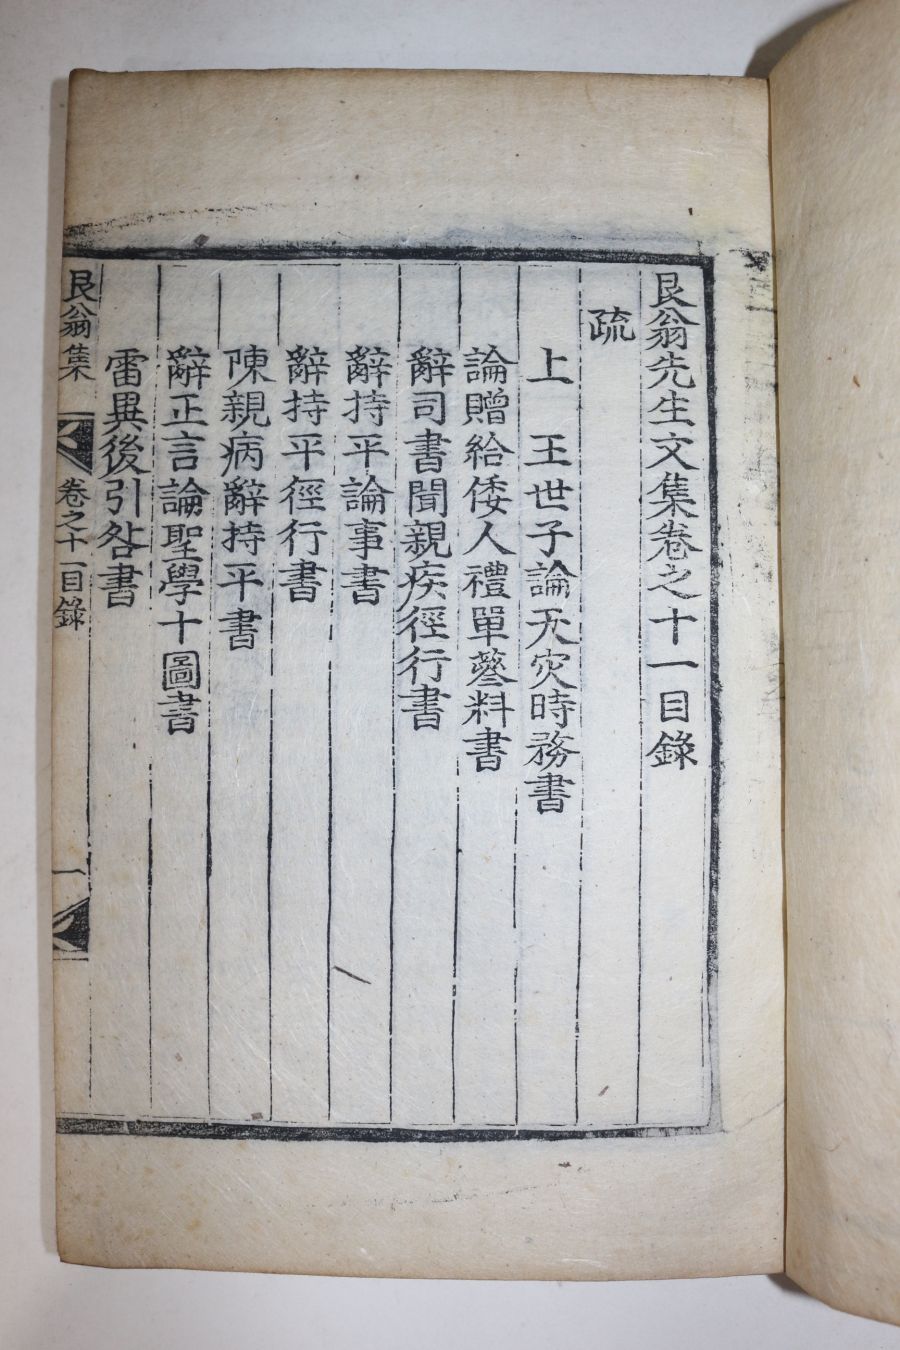 艮翁先生文集卷之十一目錄
疏
上　王世子論天灾時務書
論贈給倭人禮單蔘料書
辭司書聞親疾徑行書
辭持平論事書
辭持平徑行書
陳親病辭持平書
辭正言論聖學十圖書
雷異後引咎書
艮翁集　卷之十一目錄　一